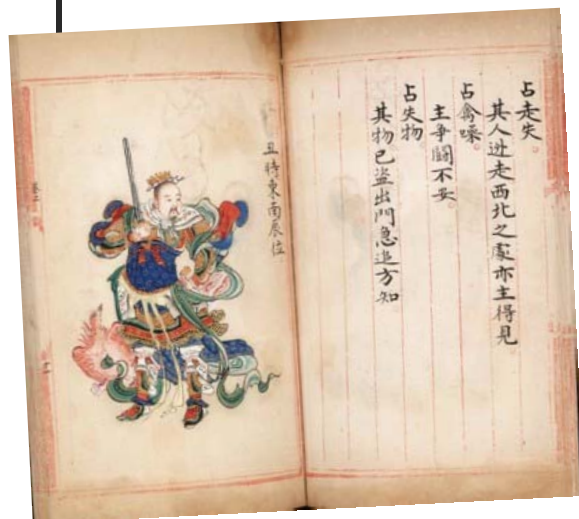 占走失
其人逃走西北之處亦主得見
占禽噪
主爭鬪不安
占失物
其物已盜出門急追方知
丑時東南辰位